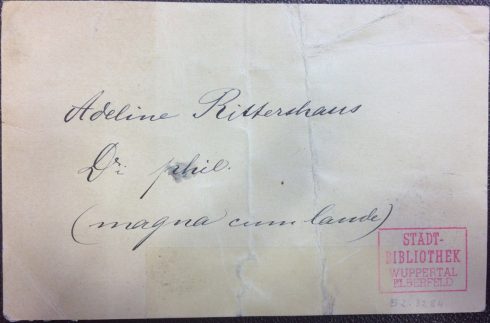 Adeline Rittershaus
Dr. phil.
(magna cum laude)
STADT-
BIBLIOTHEK
WUPPERTAL
ELBERFELD